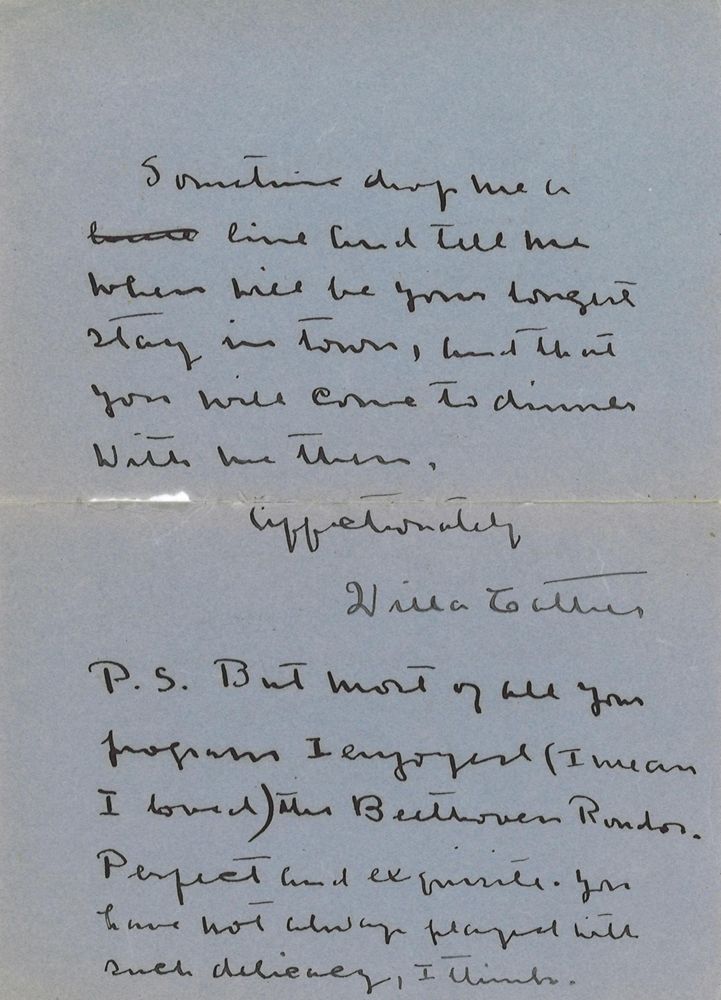 Sometime drop me a
line and tell me
when will be your longest
stay in town, and that
you will come to dinner
with me then.
Affectionately
Willa Cather
P.S. But most of all your
program I enjoyed (I mean
I loved) the Beethoven Rondos.
Perfect and exquisite. You
have not always played with
such delicacy, I think.